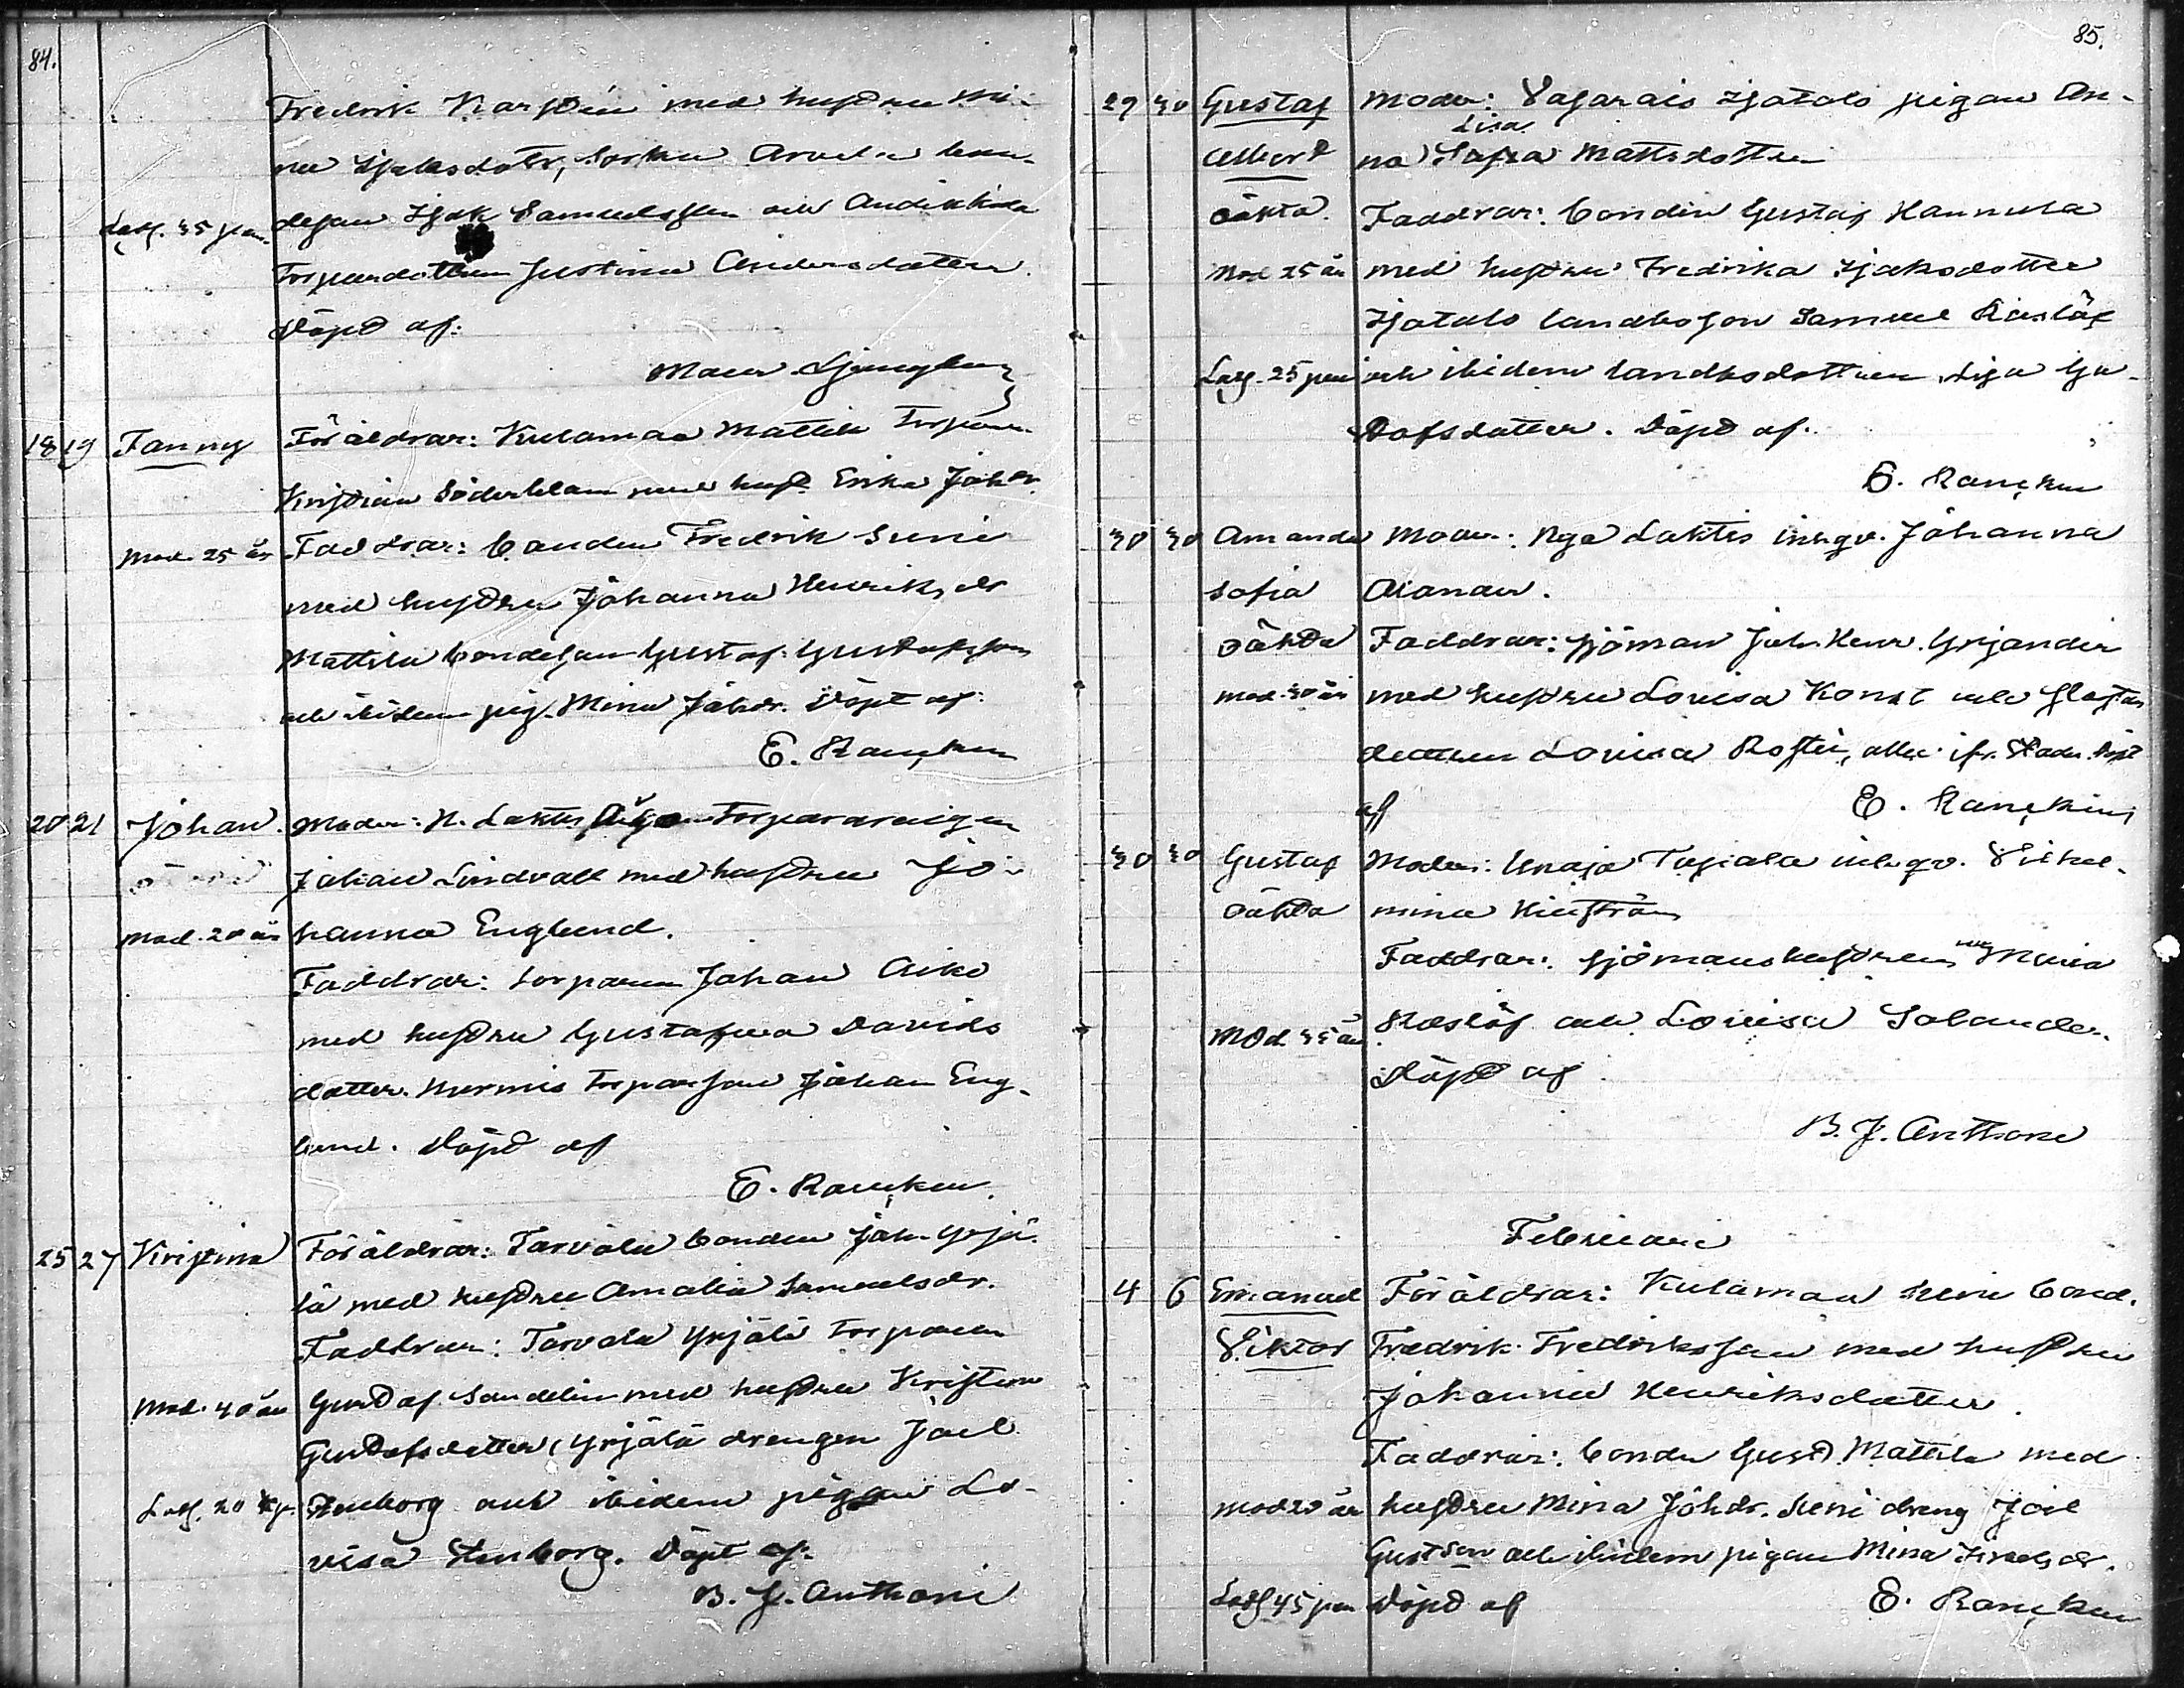 84.
Fredrik Karstén med hustru Mi-
na Isaksdotr, torku Arvela bon-
Lösf. 35 pen. desson Isak Samuelsson och Andikkola
torparedottren Justina Andersdotter.
Döpt af:
Maur. Ljungberg
18 19 Fanny Föräldrar: Kulamaa Mattila torparen
Kristian Söderblom med hust. Erika Johdr.
Mod. 25 år Faddrar: bonden Fredrik Suni
med hustru Johanna Henriksdr
Mattila bondesson Gustaf Gustafsson
och ibidem pig. Mina Johdr. Döpt af:
E. Rancken
20 21 Johan Moder: N. Laktis torpare
Johan Lindvall med hustru Jo-
Mod. 20 år hanna Englund.
Faddrar: torparen Johan Aiko
med hustru Gustafva Davids
dotter. Nurmis torparson Johan Eng-
lund. Döpt af
E. Rancken.
25 27 Kristina Föräldrar: Tarvola bonden Joh. Yrjä-
lä med hustru Amalia Samuelsdr.
Faddrar: Tarvola Yrjälä torparen
Mod. 40 år Gustaf Sandelin med hustru Kristina
Gustafsdotter, Yrjälä drengen Joel
Lösf. 20 kp. Stenborg och ibidem pigan Lo-
visa Stenborg. Döpt af:
B. J. Anthoni
85.
29 30 Gustaf Moder: Vasarais Isotalo pigan An-
Lisa
Albert na Mattsdotter
oäkta. Faddrar: bonden Gustaf Hannula
Mod 25 år med hustru Fredrika Isaksdotter
Isotalo landbosson Samuel
Lösf. 25 pen och ibidem landbodottren Lisa Gu-
stafsdotter. Döpt af.
E. Rancken
30 30 Amanda Moder: Nya Laktis inhqv. Johanna
Sofia Alander.
oäkta Faddrar: sjöman Joh. Henr. Grjander
mod. 30 år med hustru Lovisa Konst och
dottren Lovisa Rostei, alla ifr. staden. Döpt
af E. Rancken
30 30 Gustaf Moder: Unaja inhqv. Vilhel-
oäkta mina
Faddrar: sjömanshustrun Maria
Mod. 35 år och Lovisa Solander.
Döpt af
B. J. Anthoni
Februari
4 6 Emanuel Föräldrar: Kulamaa Suni bond.
Viktor Fredrik Fredriksson med hustru
Johanna Henriksdotter.
Faddrar: bonden Gust Mattila med
Mod 20 år hustru Mina Johdr. Suni dreng Joel
Gustson och ibidem pigan Mina Israelsdr.
Lösf 45 pen Döpt af E. Rancken